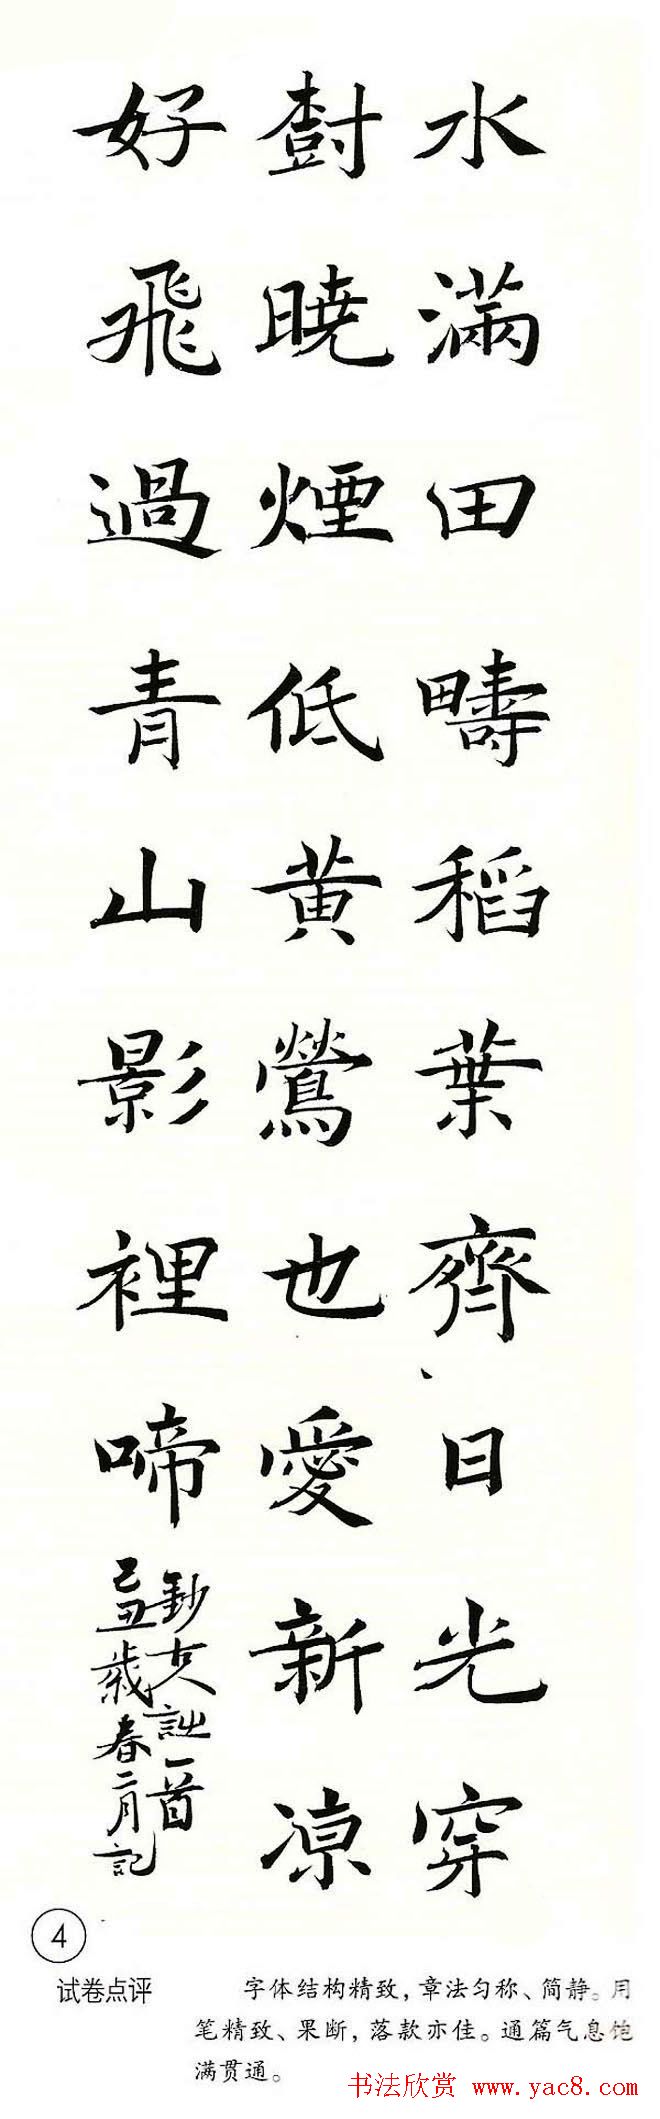 水滿田疇稻葉齊日光穿
樹曉煙低黃鶯也愛新涼
好飛過青山影裡啼
鈔古人詩一首
己丑歲春二月記
4
试卷点评
字体结构精致，章法匀称、简静。用
笔精致、果断，落款亦佳。通篇气息饱
满贯通。
书法欣赏 www.yac8.com